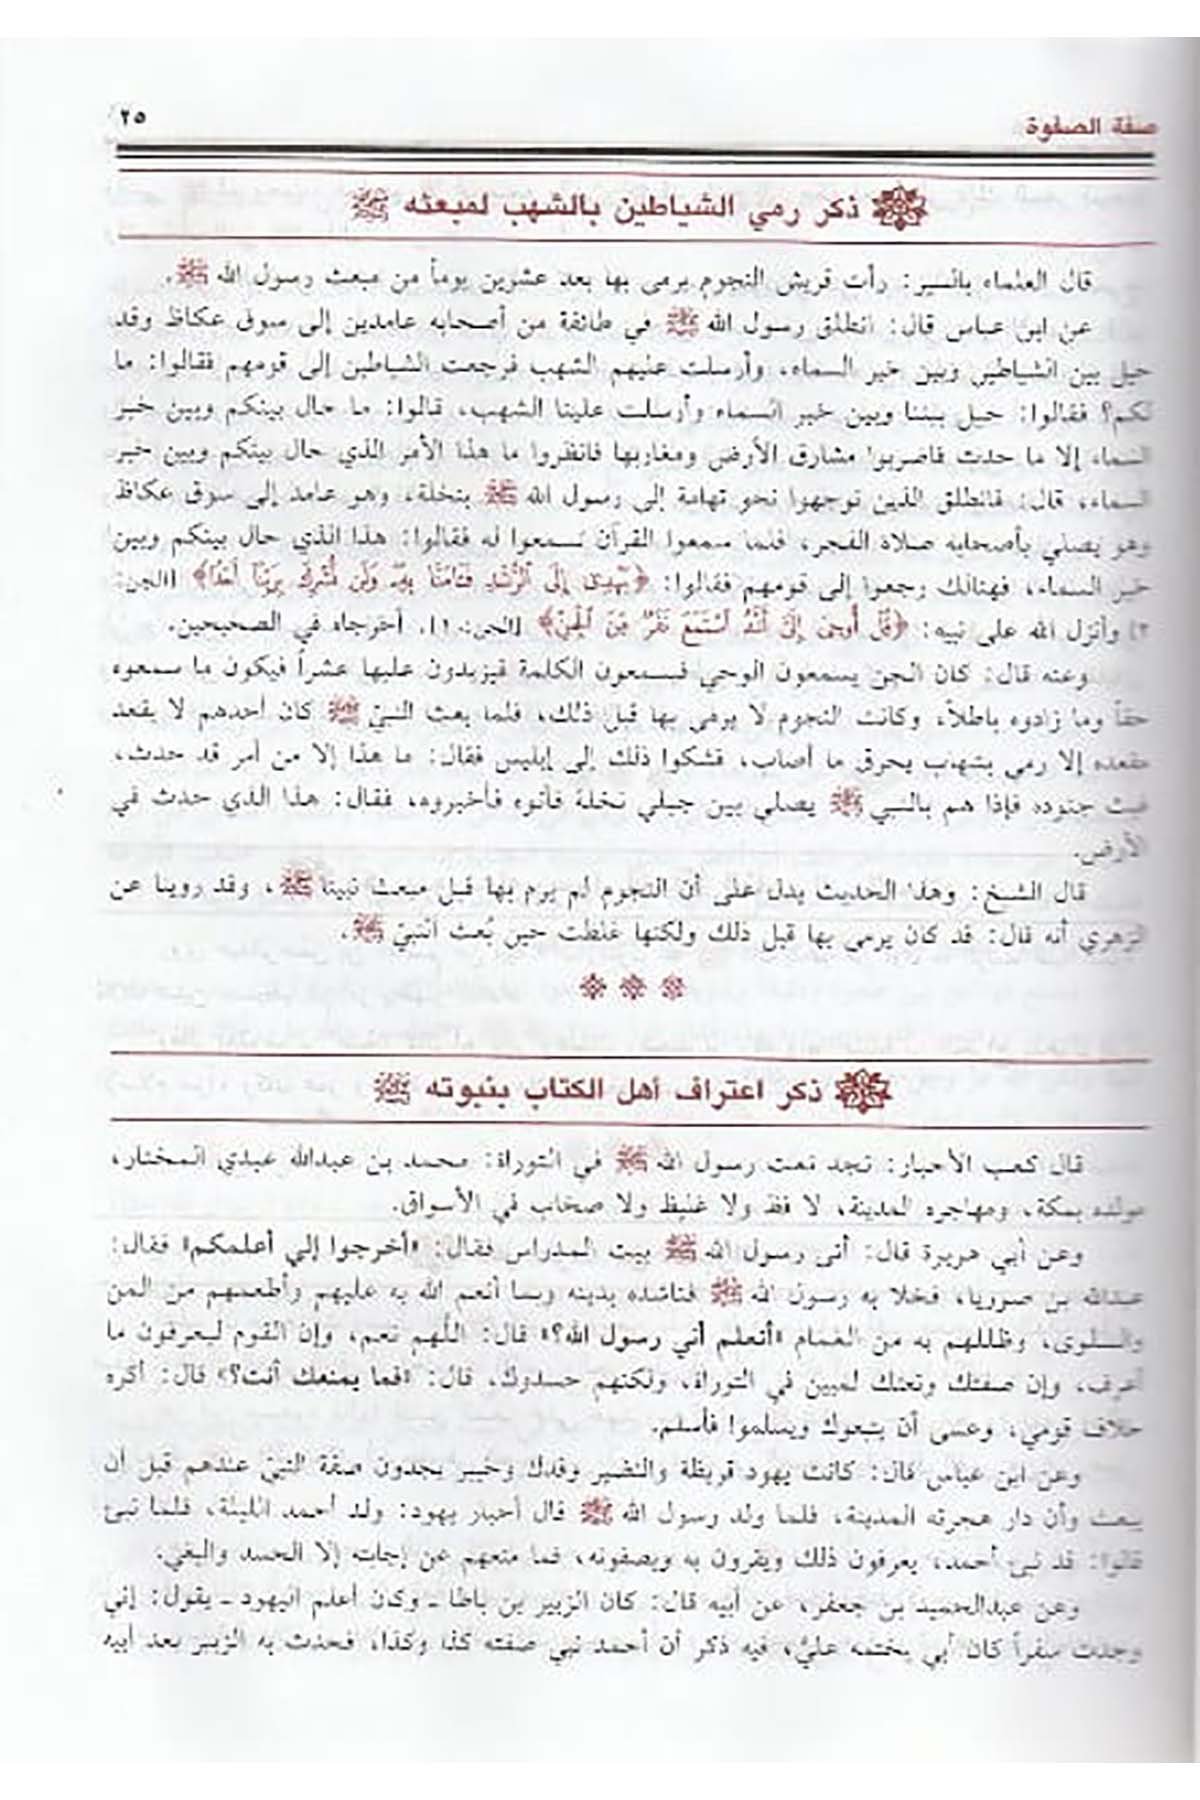 صفة الصفوة
٢٥
ذكر رمي الشياطين بالشهب لمبعثه ﷺ
قال العلماء بالسير: رأت قريش النجوم يرمى بها بعد عشرين يوماً من مبعث رسول الله ﷺ.
عن ابن عباس قال: انطلق رسول الله ﷺ في طائفة من أصحابه عامدين إلى سوق عكاظ وقد
حيل بين الشياطين وبين خبر السماء، وأرسلت عليهم الشهب فرجعت الشياطين إلى قومهم فقالوا: ما
لكم؟ فقالوا: حيل بيننا وبين خبر السماء وأرسلت علينا الشهب، قالوا: ما حال بينكم وبين خبر
السماء إلا ما حدث فاضربوا مشارق الأرض ومغاربها فانظروا ما هذا الأمر الذي حال بينكم وبين خبر
السماء، قال: فانطلق الذين توجهوا نحو تهامة إلى رسول الله ﷺ بنخلة، وهو عامد إلى سوق عكاظ
وهو يصلي بأصحابه صلاة الفجر، فلما سمعوا القرآن تسمعوا له فقالوا: هذا الذي حال بينكم وبين
خبر السماء، فهنالك رجعوا إلى قومهم فقالوا: ﴿يَهْدِي إِلَى الرُّشْدِ فَآمَنَّا بِهِ وَلَن نُّشْرِكَ بِرَبِّنَا أَحَدًا﴾ [الجن:
٢] وأنزل الله على نبيه: ﴿قُلْ أُوحِيَ إِلَيَّ أَنَّهُ اسْتَمَعَ نَفَرٌ مِّنَ الْجِنِّ﴾ [الجن: ١]. أخرجاه في الصحيحين.
وعنه قال: كان الجن يسمعون الوحي فيسمعون الكلمة فيزيدون عليها عشراً فيكون ما سمعوه
حقاً وما زادوه باطلاً، وكانت النجوم لا يرمى بها قبل ذلك، فلما بعث النبيّ ﷺ كان أحدهم لا يقعد
مقعده إلا رمي بشهاب يحرق ما أصاب، فشكوا ذلك إلى إبليس فقال: ما هذا إلا من أمر قد حدث،
فبث جنوده فإذا هم بالنبي ﷺ يصلي بين جبلي نخلة فأتوه فأخبروه، فقال: هذا الذي حدث في
الأرض.
قال الشيخ: وهذا الحديث يدل على أن النجوم لم يرم بها قبل مبعث نبينا ﷺ، وقد روينا عن
الزهري أنه قال: قد كان يرمى بها قبل ذلك ولكنها غلظت حين بُعث النبيّ ﷺ.
ذكر اعتراف أهل الكتاب بنبوته ﷺ
قال كعب الأحبار: نجد نعت رسول الله ﷺ في التوراة: محمد بن عبدالله عبدي المختار،
مولده بمكة، ومهاجره المدينة، لا فظ ولا غليظ ولا صخاب في الأسواق.
وعن أبي هريرة قال: أتى رسول الله ﷺ بيت المدراس فقال: «أخرجوا إلي أعلمكم» فقال:
عبدالله بن صوريا، فخلا به رسول الله ﷺ فناشده بدينه وبما أنعم الله به عليهم وأطعمهم من المن
والسلوى، وظللهم به من الغمام «أتعلم أني رسول الله؟» قال: اللّهم نعم، وإن القوم ليعرفون ما
أعرف، وإن صفتك ونعتك لمبين في التوراة، ولكنهم حسدوك، قال: «فما يمنعك أنت؟» قال: أكره
خلاف قومي، وعسى أن يتبعوك ويسلموا فأسلم.
وعن ابن عباس قال: كانت يهود قريظة والنضير وفدك وخيبر يجدون صفة النبيّ عندهم قبل أن
يبعث وأن دار هجرته المدينة، فلما ولد رسول الله ﷺ قال أحبار يهود: ولد أحمد الليلة، فلما نبئ
قالوا: قد نبئ أحمد، يعرفون ذلك ويقرون به ويصفونه، فما منعهم عن إجابته إلا الحسد والبغي.
وعن عبدالحميد بن جعفر، عن أبيه قال: كان الزبير بن باطا ـ وكان أعلم اليهود ـ يقول: إني
وجدت سفراً كان أبي يختمه عليّ، فيه ذكر أن أحمد نبي صفته كذا وكذا، فحدث به الزبير بعد أبيه